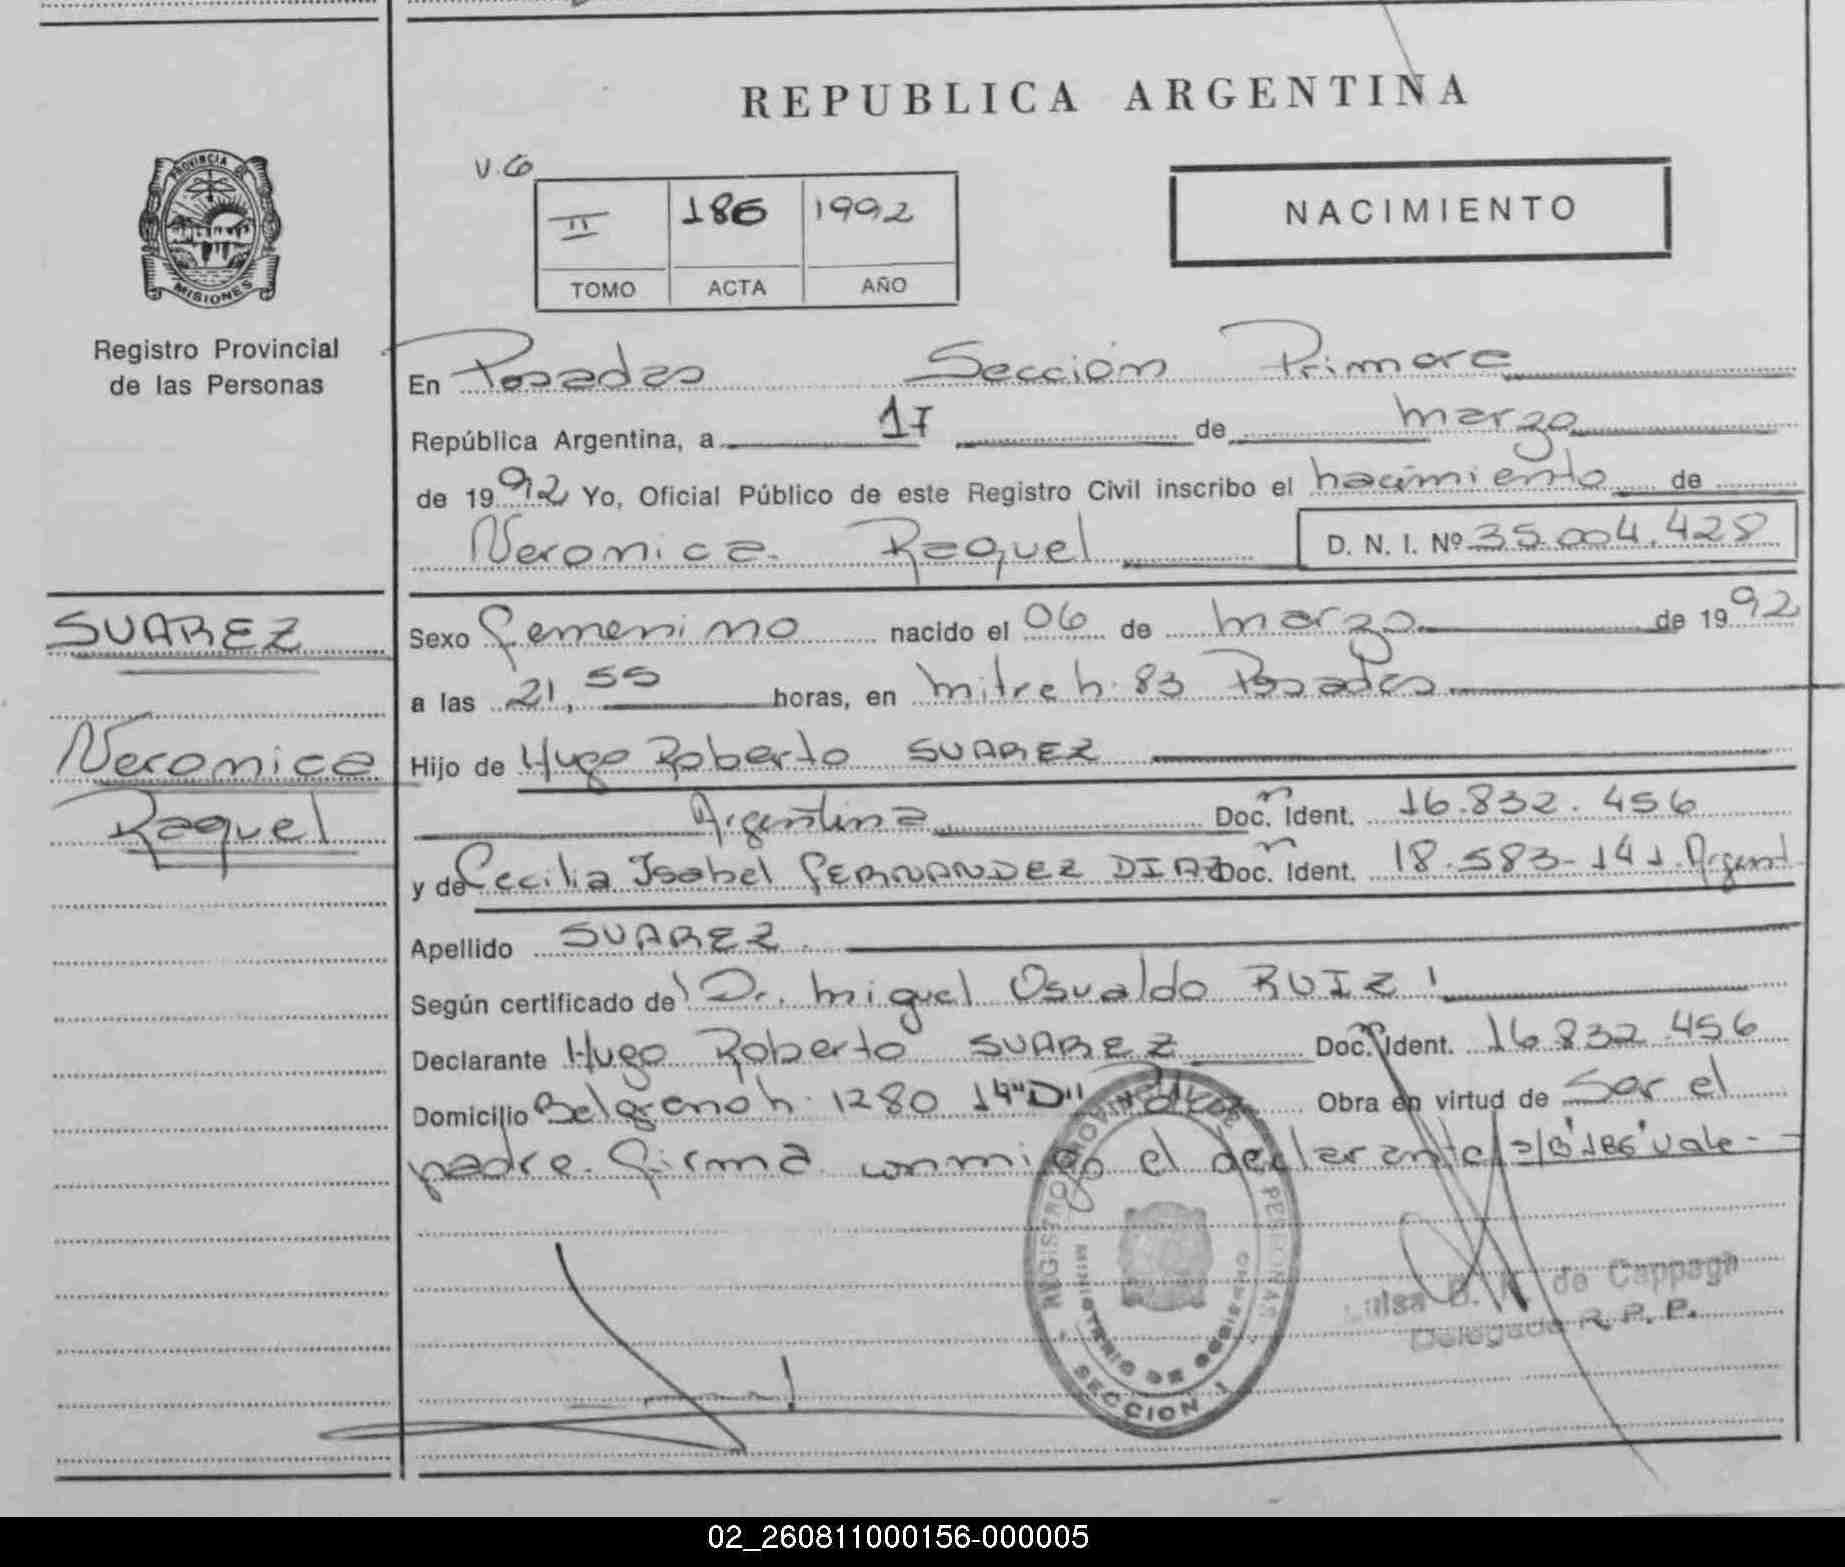 REPUBLICA ARGENTINA
PROVINCIA DE
MISIONES
Registro Provincial
de las Personas
V.G
II 186 1992
TOMO ACTA AÑO
NACIMIENTO
En Posadas Sección Primera
República Argentina, a 17 de marzo
de 1992 Yo, Oficial Público de este Registro Civil inscribo el nacimiento de
Veronica Raquel D. N. I. Nº 35.004.428
SUAREZ
Veronica
Raquel
Sexo femenino nacido el 06 de marzo de 1992
a las 21,55 horas, en mitre n. 83 Posadas
Hijo de Hugo Roberto SUAREZ
Argentina Doc. Ident. 16.832.456
y de Cecilia Isabel FERNANDEZ DIAZ Doc. Ident. 18.583-141 Argent
Apellido SUAREZ
Según certificado de Dr. Miguel Osvaldo RUIZ
Declarante Hugo Roberto SUAREZ Doc. Ident. 16.832.456
Domicilio Belgrano n. 1280 14"D" Obra en virtud de Ser el
padre. Firma conmigo el declarante 186 vale -
REGISTRO PROVINCIAL DE PERSONAS
MINISTERIO DE GOBIERNO
SECCION 1
Luisa de Cappagh
Delegada R. P. P.
02_260811000156-000005